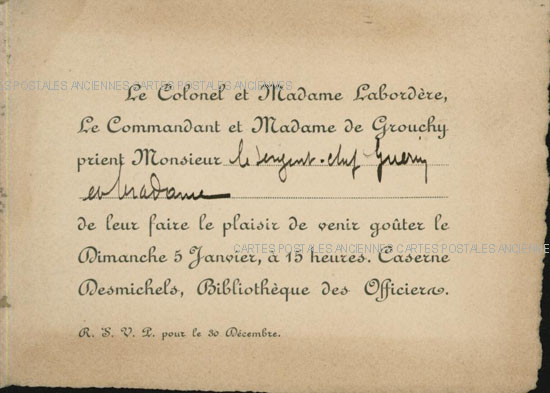 CARTES POSTALES ANCIENNES CARTES POSTALES ANCIENNES
Le Colonel et Madame Labordère,
Le Commandant et Madame de Grouchy
prient Monsieur le Sergent-chef Guérin
et Madame
de leur faire le plaisir de venir goûter le
CARTES POSTALES ANCIENNES CARTES POSTALES ANCIENNES
Dimanche 5 Janvier, à 15 heures. Caserne
Desmichels, Bibliothèque des Officiers.
R. S. V. P. pour le 30 Décembre.